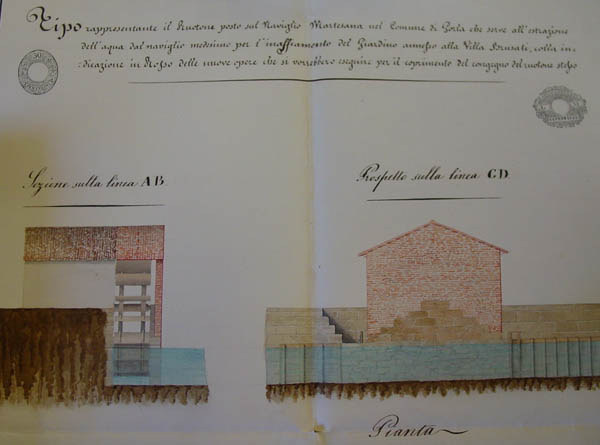 Tipo rappresentante il Ruotone posto sul Naviglio Martesana nel Comune di Gorla che serve all'estrazione
dell'aqua dal naviglio medesimo per l'inaffiamento del Giardino annesso alla Villa colla in-
dicazione in Rosso delle nuove opere che si vorrebbero eseguire per il coprimento del congegno del ruotone stesso
Sezione sulla linea AB
Prospetto sulla linea CD
Pianta